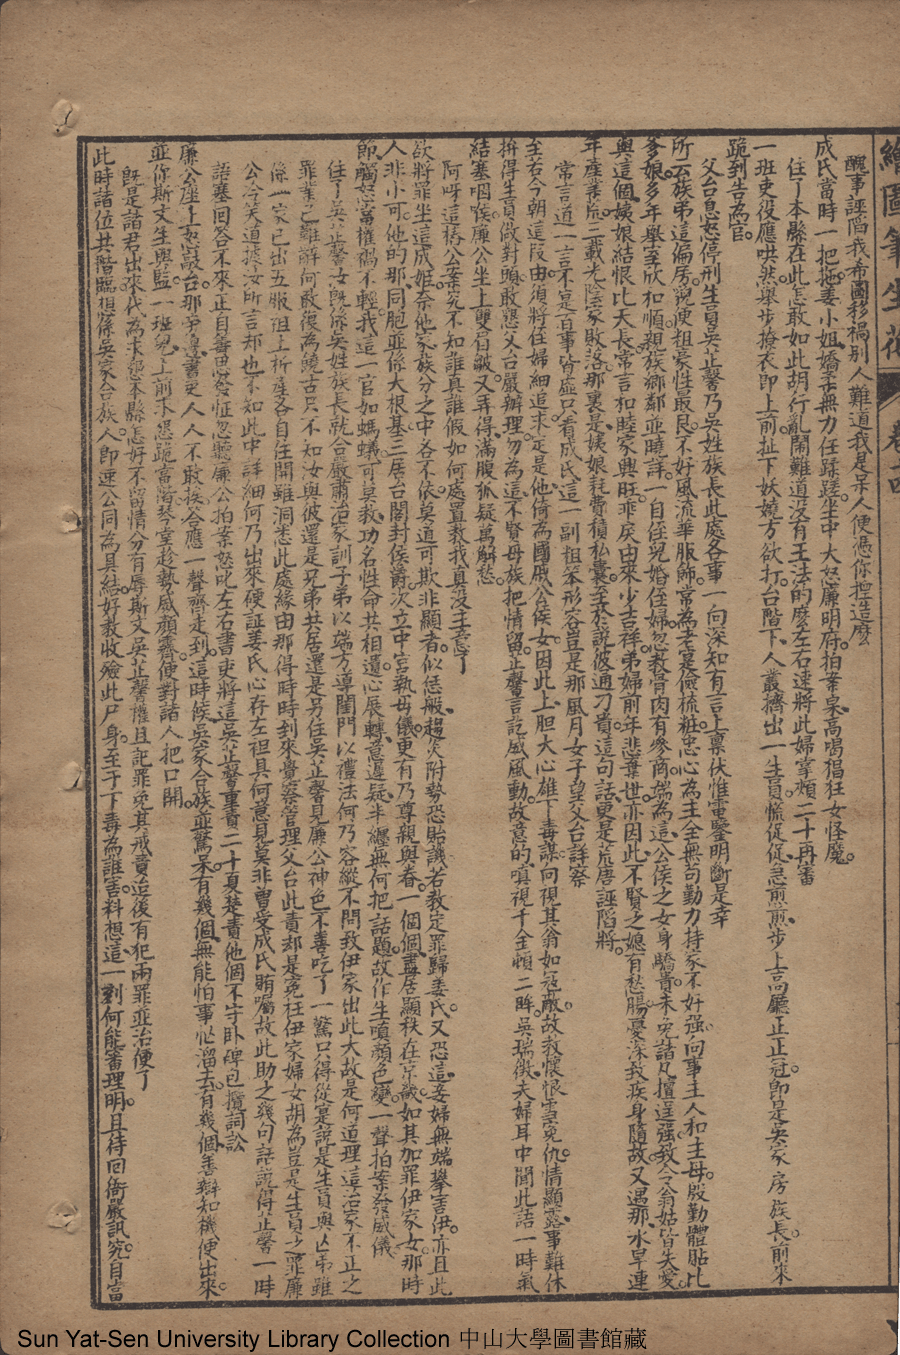 繪圖筆生花 卷十四
醜事誣蹈我希圖移禍别人難道我是呆人便憑你捏造麼
成氏當時一把拖姜小姐嬌柔無力任蹂蹉坐中大怒廉明府拍案高喝猖狂女怪魔
住了本縣在此怎敢如此胡行亂鬧難道没有王法的麼左右速將此婦掌頰二十再審
一班吏役應哄然舉步掩衣即上前扯下妖嬈方欲打台階下人叢擠出一生員慌促促急煎煎步上高廳正正冠即是吳家房族長前來
跪到告為官
父台息怒停刑生員吳芷馨乃吳姓族長此處各事一向深知有言上禀伏惟電鑒明斷是幸
所云族弟這偏房説便粗豪性最良不好風流華服飾常為老是儉梳粧忠心為主全無苟勤力持家不好强向事主人和主母殷勤體貼比
爹娘多年舉室欣和順親族鄉鄰並曉詳一自侄兒婚侄婦忽教骨肉有參商端為這公侯之女身驕貴未免諸凡擅逞强致令翁姑皆失愛
與這個姨娘結恨比天長常言和睦家興旺乖戾由來少吉祥弟婦前年悲棄世亦因此不賢之媳有愁腸憂深致疾身隨故又遇那水旱連
年產業荒二載光陰家敗落那裏是姨娘耗費積私囊至於説彼通刁貴這句話更是荒唐誣蹈將
常言道一言不寔百事皆虛只看成氏這一副粗笨形容豈是那風月女子望父台詳察
至若今朝這段由須將侄婦細追求定是他倚為國戚公侯女因此上胆大心雄下毒謀向視其翁如寇敵故教懷恨雪寃仇情顯露事難休
拚得生員做對頭敢懇父台嚴辦理勿為這不賢母族把情留芷馨言訖威風動故意的嗔視千金頓二眸吳瑞徵夫婦耳中聞此語一時氣
結塞咽喉廉公坐上雙眉皺又弄得滿腹狐疑萬觧愁
阿呀這樁公案究不知誰真誰假如何處置教我真没主意了
欲將罪坐這成姬奈他家族分之中各不依莫道可欺非顯者似恁般趨炎附勢恐貽譏若教定罪歸姜氏又恐這妾婦無端攀害伊亦且此
人非小可他的那同胞並係大根基三居台閣封侯爵次立中宫執母儀更有乃尊親與眷一個個盡居顯秩在京畿如其加罪伊家女那時
節觸怒當權禍不輕我這一官如螞蟻可莫教功名性命共相遺心展轉意遲疑半纏無何把話題故作生嗔顏色變一聲拍案發威儀
住了吳芷馨女既係吳姓族長就合嚴肅治家訓子弟以端方導閨門以禮法何乃容縱不問致伊家出此大故是何道理這治家不正之
罪業已難辭何敢復為饒舌只不知汝與彼還是兄弟共居還是另住吳芷馨見廉公神色不善吃了一驚只得從寔説是生員與亡弟雖
係一家已出五服祖上析產各自住開雖洞悉此處緣由那得時時到來覺察管理父台此責却是寃枉伊家婦女胡為豈是生員之罪廉
公冷笑道據汝所言却也不知此中詳細何乃出來硬証姜氏心存左袒具何意見莫非曾受成氏賄囑故此助之幾句話説得芷馨一時
語塞回答不來正自畨思發怔忽聽廉公拍案怒叱左右書吏將這吳芷馨重責二十夏楚責他個不守卧碑包攬詞訟
廉公座上怒敲台那旁邊書吏人人不敢挨合應一聲齊走到這時候吳家合族並驚呆有幾個無能怕事忙溜去有幾個善辯知機便出來
並你斯文生與監一班兒上前求懇跪富階琴堂趁勢威顏霽便對諸人把口開
既是諸君出來代為求懇本縣怎好不留情分有辱斯文吳芷馨權且記罪免其戒責迨後有犯兩罪並治便了
此時諸位共階臨想係吳家合族人即速公同為具結好教收殮此尸身至于下毒為誰害料想這一刻何能審理明且待回衙嚴訊究自當
Sun Yat-Sen University Library Collection 中山大學圖書館藏